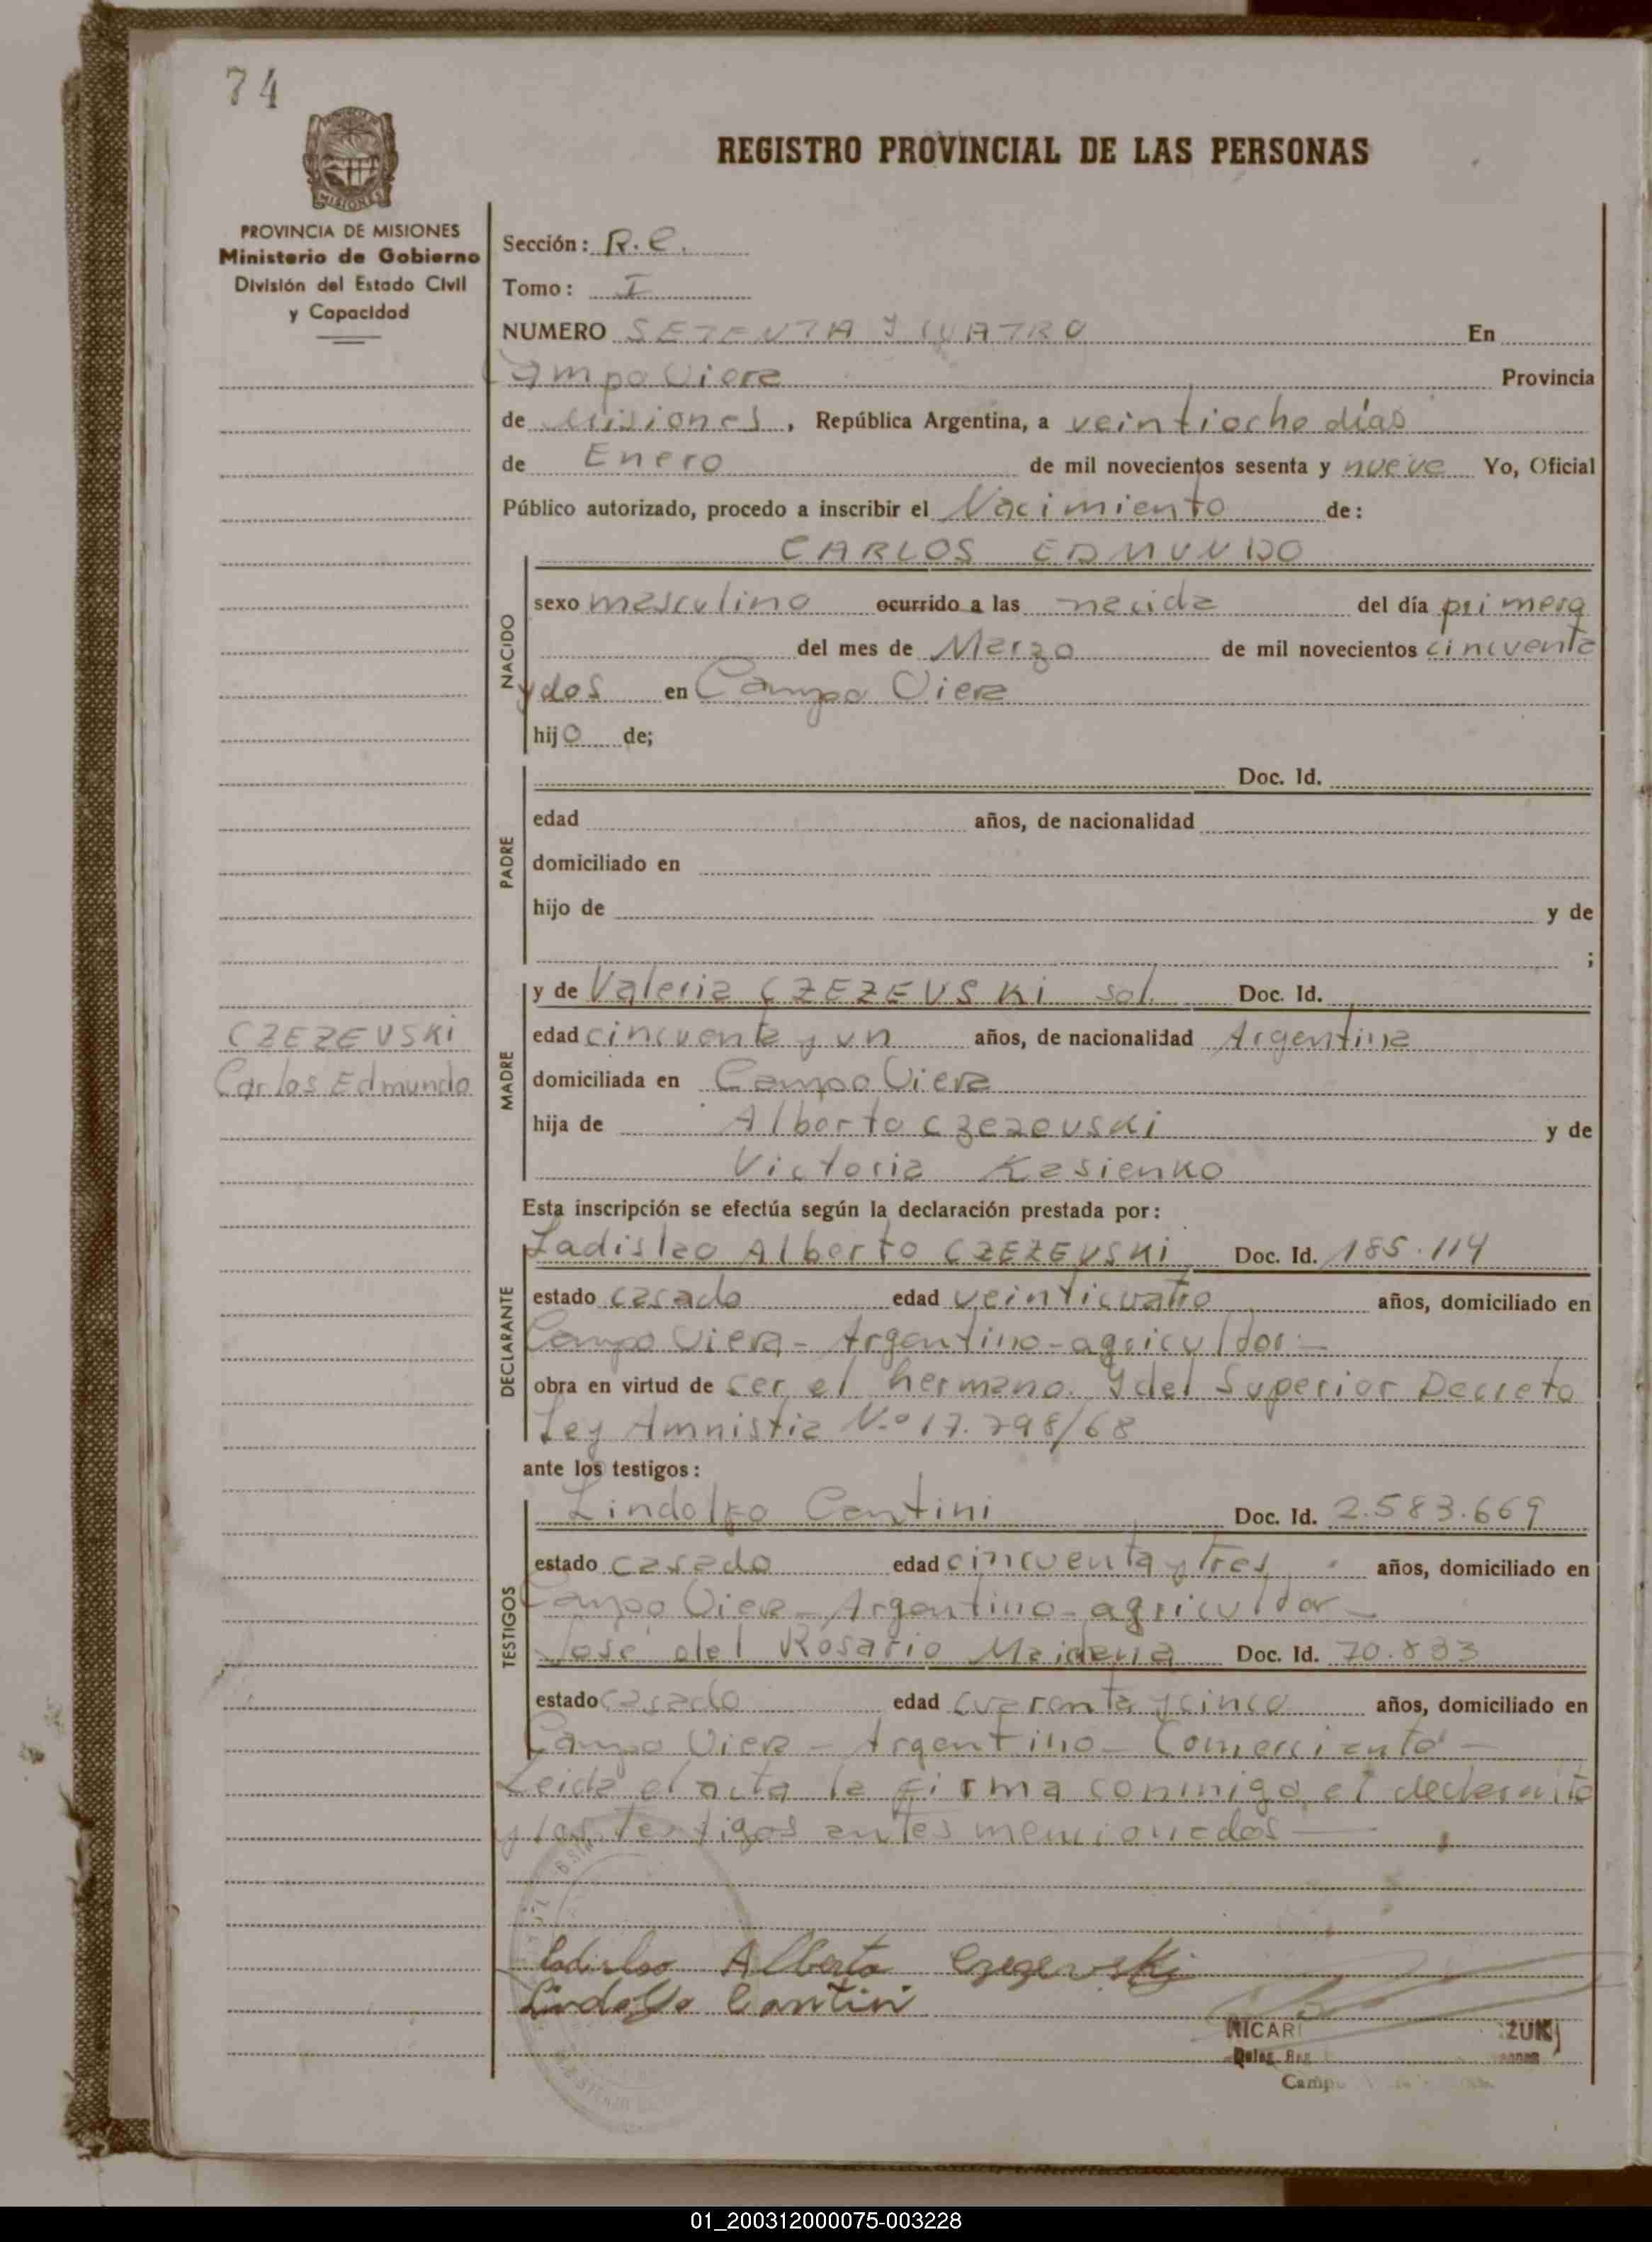 74
REGISTRO PROVINCIAL DE LAS PERSONAS
PROVINCIA DE MISIONES
Ministerio de Gobierno
División del Estado Civil
y Capacidad
Sección: R.C.
Tomo: I
NUMERO SETENTA Y CUATRO En
Campo Viera Provincia
de Misiones, República Argentina, a veintiocho días
de Enero de mil novecientos sesenta y nueve Yo, Oficial
Público autorizado, procedo a inscribir el Nacimiento de:
CARLOS EDMUNDO
NACIDO
sexo masculino ocurrido a las nacida del día primero
del mes de Marzo de mil novecientos cincuenta
y dos en Campo Viera
hijo de;
PADRE
Doc. Id.
edad años, de nacionalidad
domiciliado en
hijo de y de
;
CZEZEVSKI
Carlos Edmundo
MADRE
y de Valeria CZEZEVSKI sol. Doc. Id.
edad cincuenta y un años, de nacionalidad Argentina
domiciliada en Campo Viera
hija de Alberto Czezevski y de
Victoria Kasienko
Esta inscripción se efectúa según la declaración prestada por:
DECLARANTE
Ladislao Alberto CZEZEVSKI Doc. Id. 185.114
estado casado edad veinticuatro años, domiciliado en
Campo Viera - Argentino - agricultor -
obra en virtud de ser el hermano. Y del Superior Decreto
Ley Amnistia N.º 17.798/68
ante los testigos:
TESTIGOS
Lindolfo Cantini Doc. Id. 2.583.669
estado casado edad cincuenta y tres años, domiciliado en
Campo Viera - Argentino - agricultor -
José del Rosario Maidana Doc. Id. 70.833
estado casado edad cuarenta y cinco años, domiciliado en
Campo Viera - Argentino - Comerciante -
Leida el acta la firma conmigo el declarante
y los testigos antes mencionados -
Ladislao Alberto Czezevski
Lindolfo Cantini
NICAR ZUK
Deleg. Reg.
Camp
01_200312000075-003228